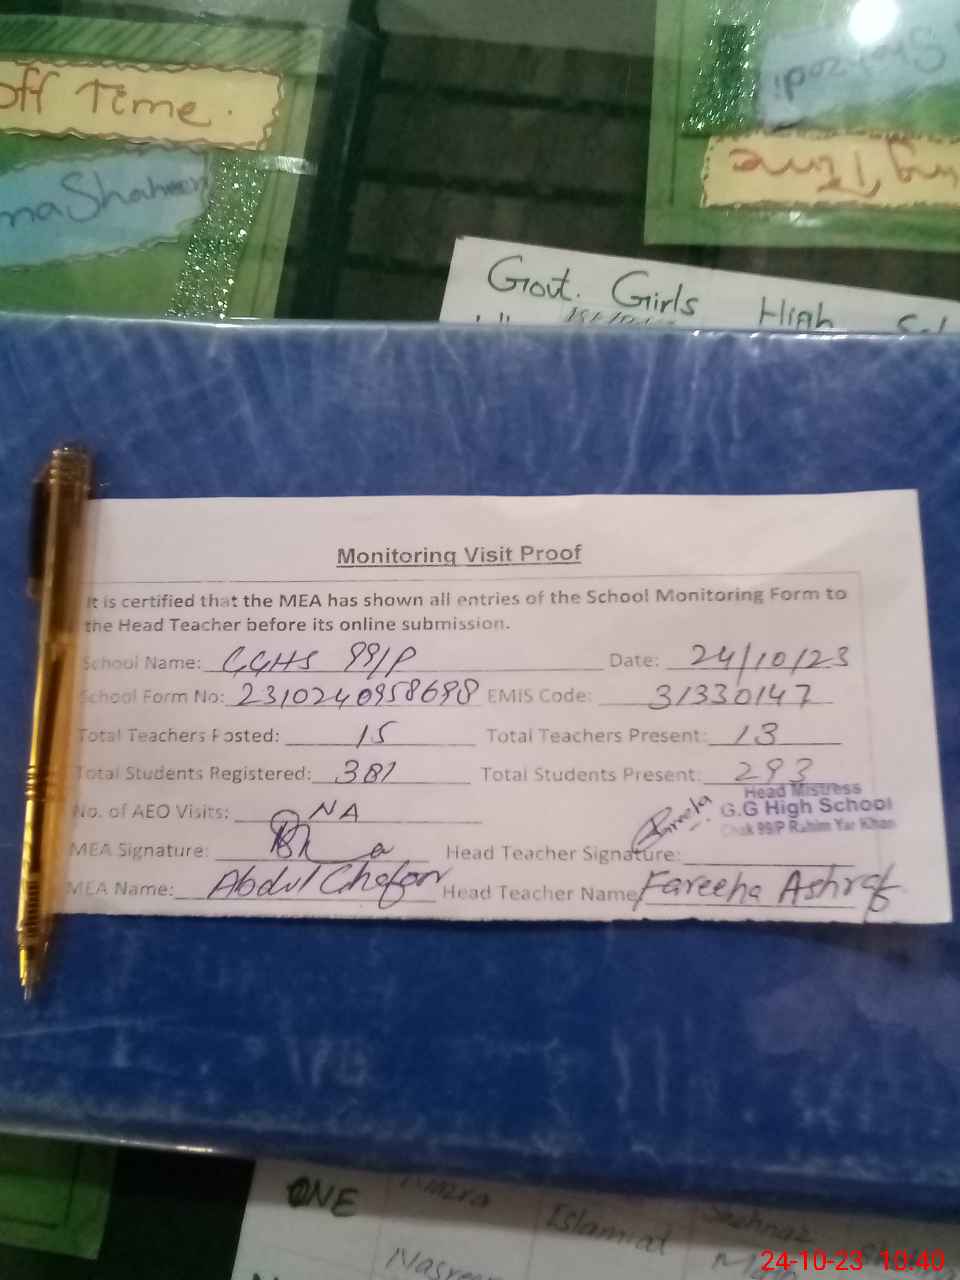 off Time.
Shaheen
Time
Govt. Girls High
Monitoring Visit Proof
It is certified that the MEA has shown all entries of the School Monitoring Form to
the Head Teacher before its online submission.
School Name: GGHS 99/P Date: 24/10/23
School Form No: 2310240958698 EMIS Code: 31330147
Total Teachers Posted: 15 Total Teachers Present: 13
Total Students Registered: 381 Total Students Present: 293
Head Mistress
No. of AEO Visits: NA G.G High School
Chak 99/P Rahim Yar Khan
MEA Signature: Head Teacher Signature:
MEA Name: Abdul Ghafar Head Teacher Name Fareeha Ashraf
ONE Islamiat Shehnaz
Nasreen
24-10-23 10:40